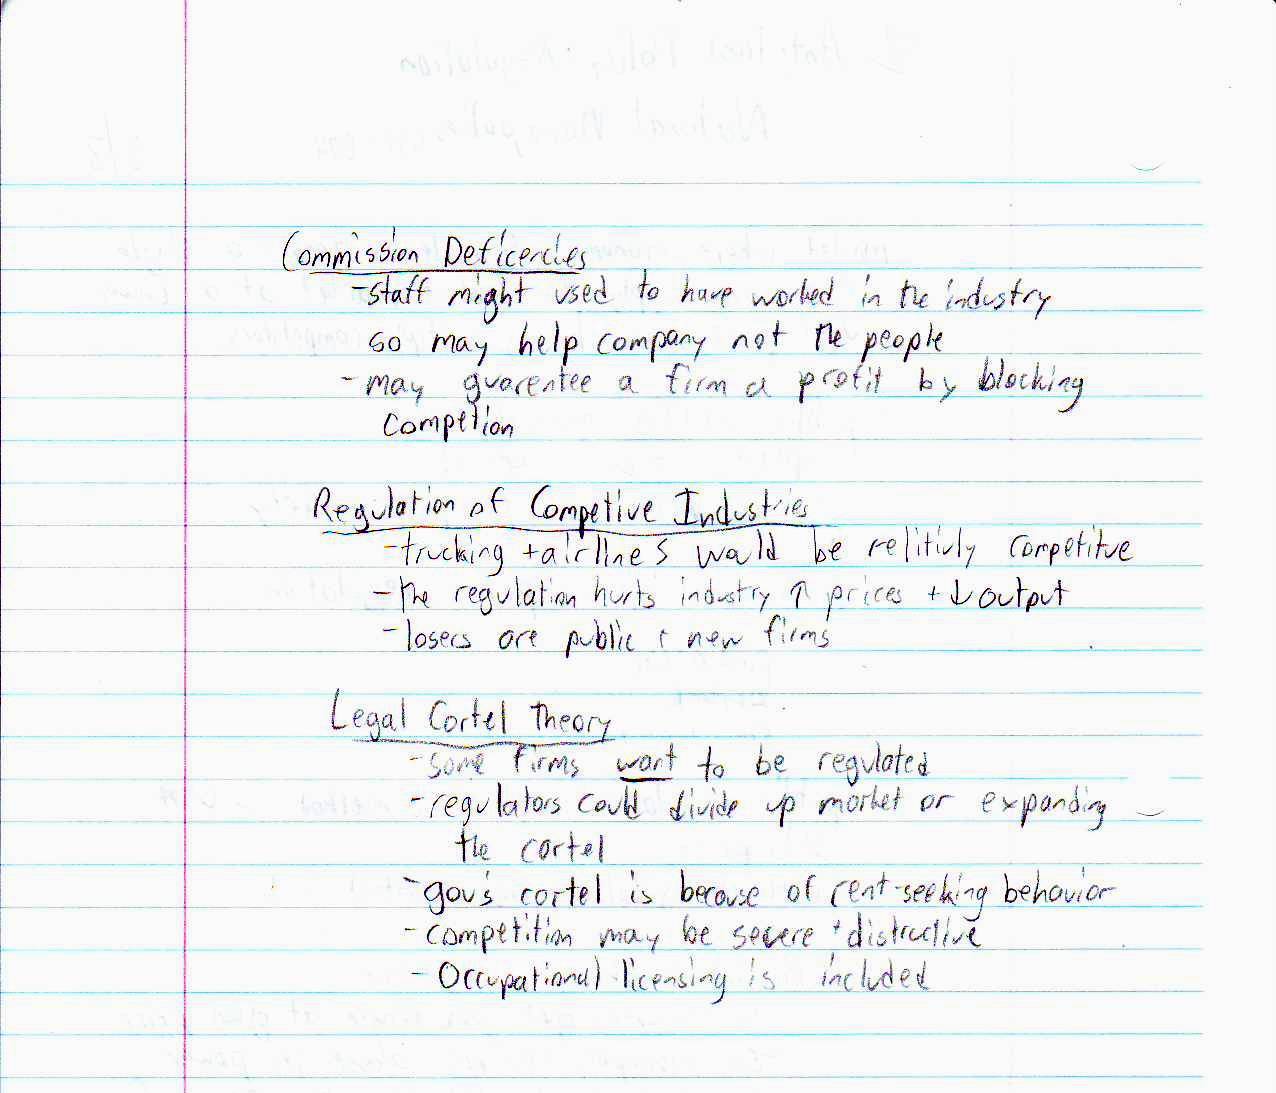 Commission Deficencies
-staff might used to have worked in the industry
so may help company not the people
-may guarentee a firm a profit by blocking
Competion
Regulation of Competive Industries
-trucking + airlines would be relitivly competitve
-the regulation hurts industry ↑ prices + ↓ output
-losers are public + new firms
Legal Cartel Theory
-some firms want to be regulated
-regulators could divide up market or expanding
the cartel
-gov's cartel is because of rent-seeking behavior
-competition may be severe + distructive
-Occupational licensing is included